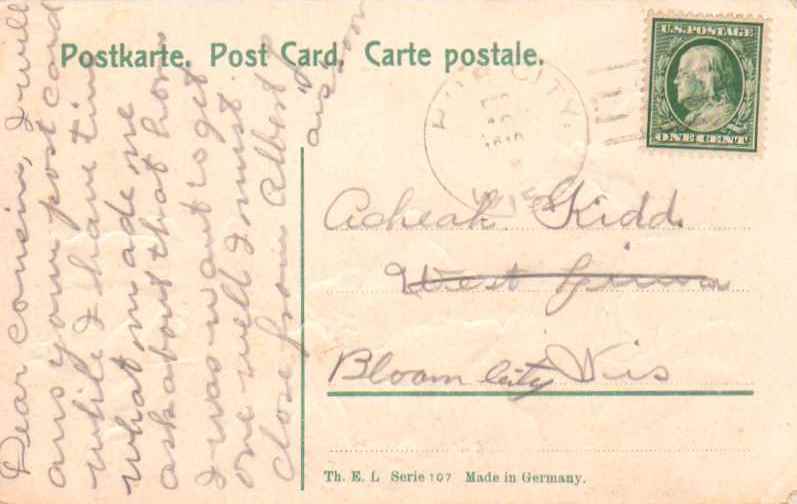 Postkarte. Post Card. Carte postale.
U.S. POSTAGE
ONE CENT
CITY,
WIS
Dear cousin, I will
ans your post card
while I have time
what made me
ask about that horn
I was want to get
one well I must
close from Albert
ans soon
Kidd
West
Bloom City Wis
Th. E. L Serie 107 Made in Germany.